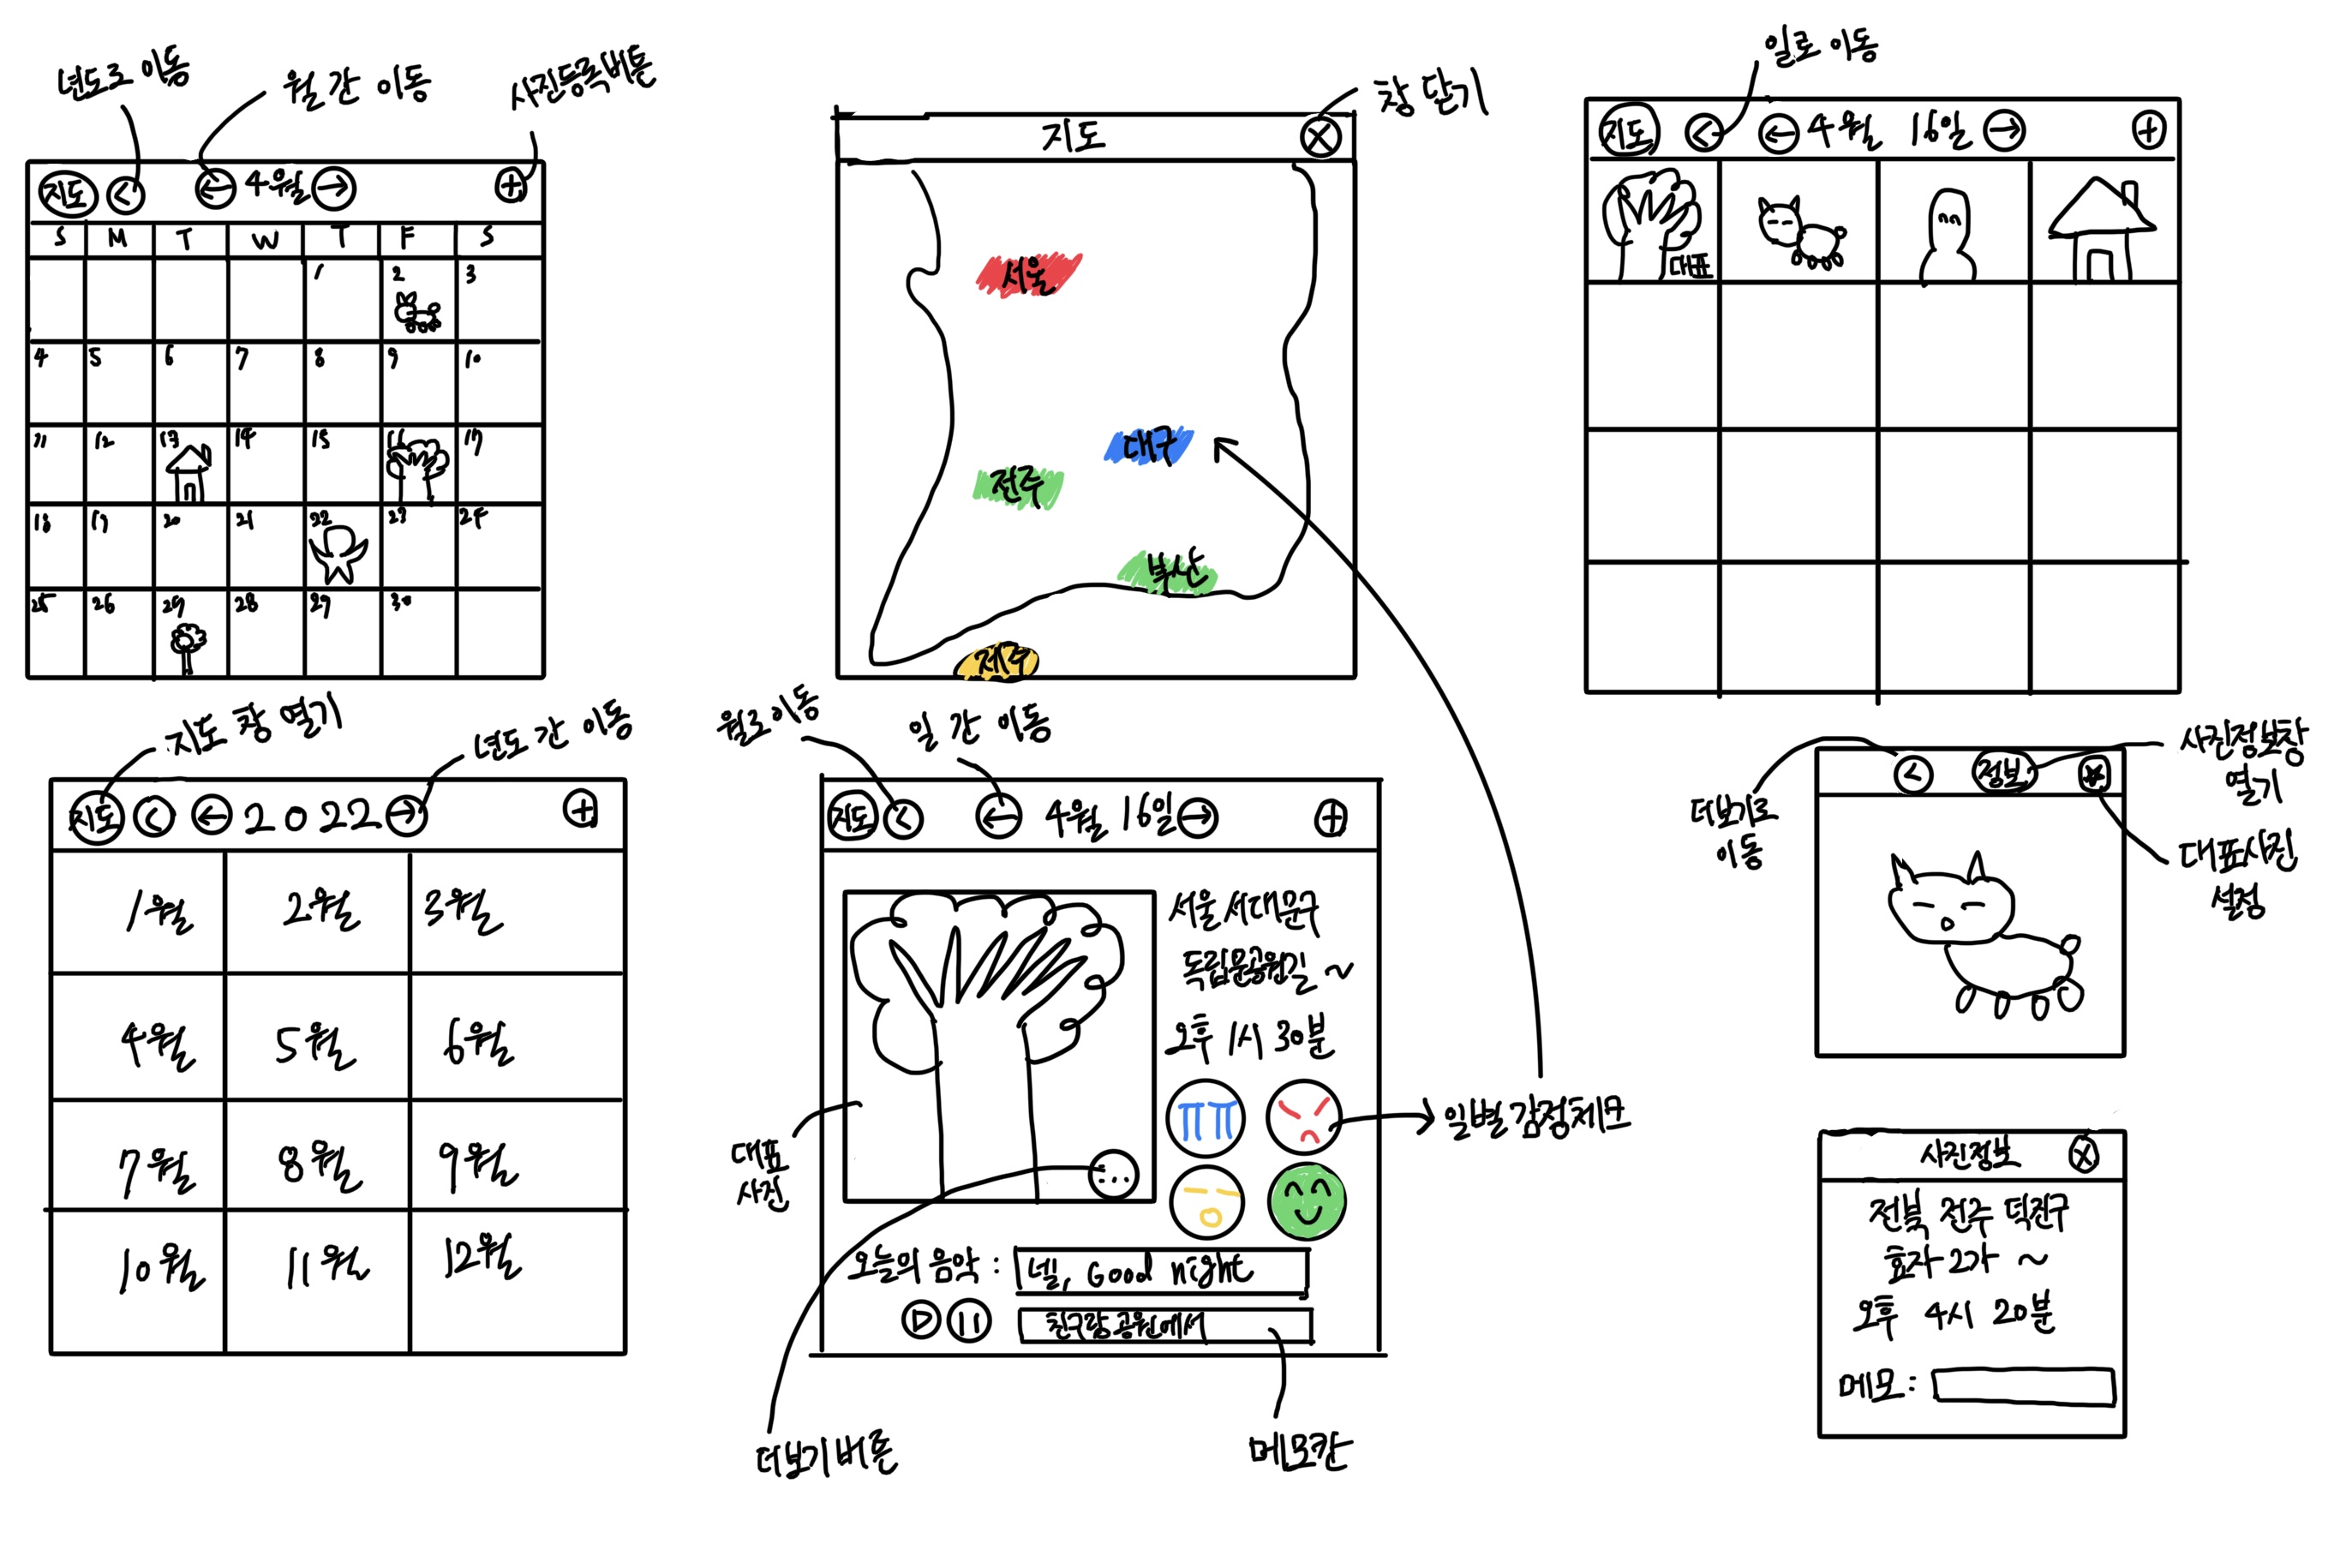 년도로 이동
월 간 이동
사진등록버튼
지도 < ← 4월 → +
S M T W T F S
1 2 3
4 5 6 7 8 9 10
11 12 13 14 15 16 17
18 19 20 21 22 23 24
25 26 29 28 29 30
창 닫기
지도 X
서울
대구
전주
부산
제주
일로 이동
지도 < ← 4월 16일 → +
대표
지도 창 열기
년도 간 이동
지도 < ← 2022 → +
1월 2월 3월
4월 5월 6월
7월 8월 9월
10월 11월 12월
월로 이동
일 간 이동
지도 < ← 4월 16일 → +
서울 서대문구
독립문공원길 ~
오후 1시 30분
ㅠㅠ
일별 감정체크
대표
사진
...
오늘의 음악 : 넬, Good night
친구랑 공원에서
더보기 버튼
메모칸
더보기로
이동
< 정보
사진정보창
열기
대표사진
설정
사진정보 X
전북 전주 덕진구
효자 2가 ~
오후 4시 20분
메모 :